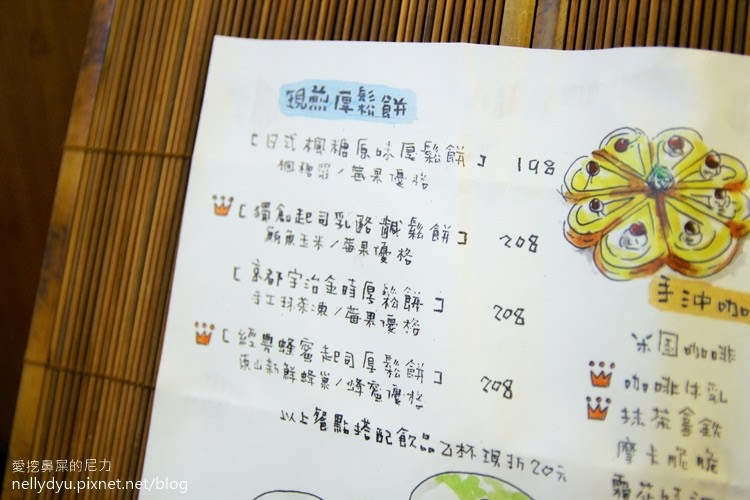 現煎厚鬆餅
[日式楓糖原味厚鬆餅] 198
楓糖漿/莓果優格
[獨創起司乳酪鹹鬆餅] 208
鮪魚玉米/莓果優格
[京都宇治金時厚鬆餅] 208
手工抹茶凍/莓果優格
[經典蜂蜜起司厚鬆餅] 208
新鮮蜂巢/蜂蜜優格
以上餐點搭配飲品乙杯現折20元
手沖咖
米園咖啡
咖啡牛乳
抹茶拿鐵
摩卡脆脆
愛挖鼻屎的尼力
nellydyu.pixnet.net/blog